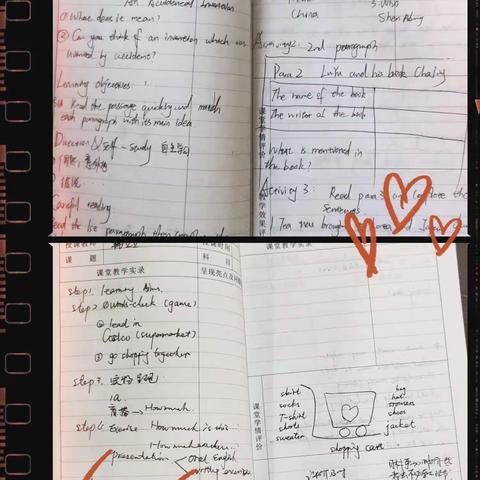 An Accidental Invention
① What does it mean?
② Can you think of an invention which was
invented by accident?
Learning objectives:
Read the passage quickly and match
each paragraph with its main idea
Direction & Self-study 自主学习
①
②
Careful reading
Read the 1st paragraph then
China
3. Who
Shen Nong
Activity 2: 2nd paragraph
Para 2 Lu Yu and his book Cha Jing
The name of the book
The writer of the book
What is mentioned in
the book?
课堂学情评价
教学效果评
Activity 3: Read para 3 and complete the
sentences
1. Tea was brought to Korea and Japan
授课教师
授课时间
课 题
科 目
课堂教学实录
呈现亮点及问题
step 1. learning aims.
step 2 words-check (game)
① lead in
Costco (supermarket)
② go shopping together
step 3.
1a.
How much.
step 4. Exercise How much is this
How much are these...
presentation
Oral English
writing exercise
课堂学情评价
skirt
socks
T-shirt
shorts
sweater
bag
hat
trousers
shoes
jacket
shopping cart